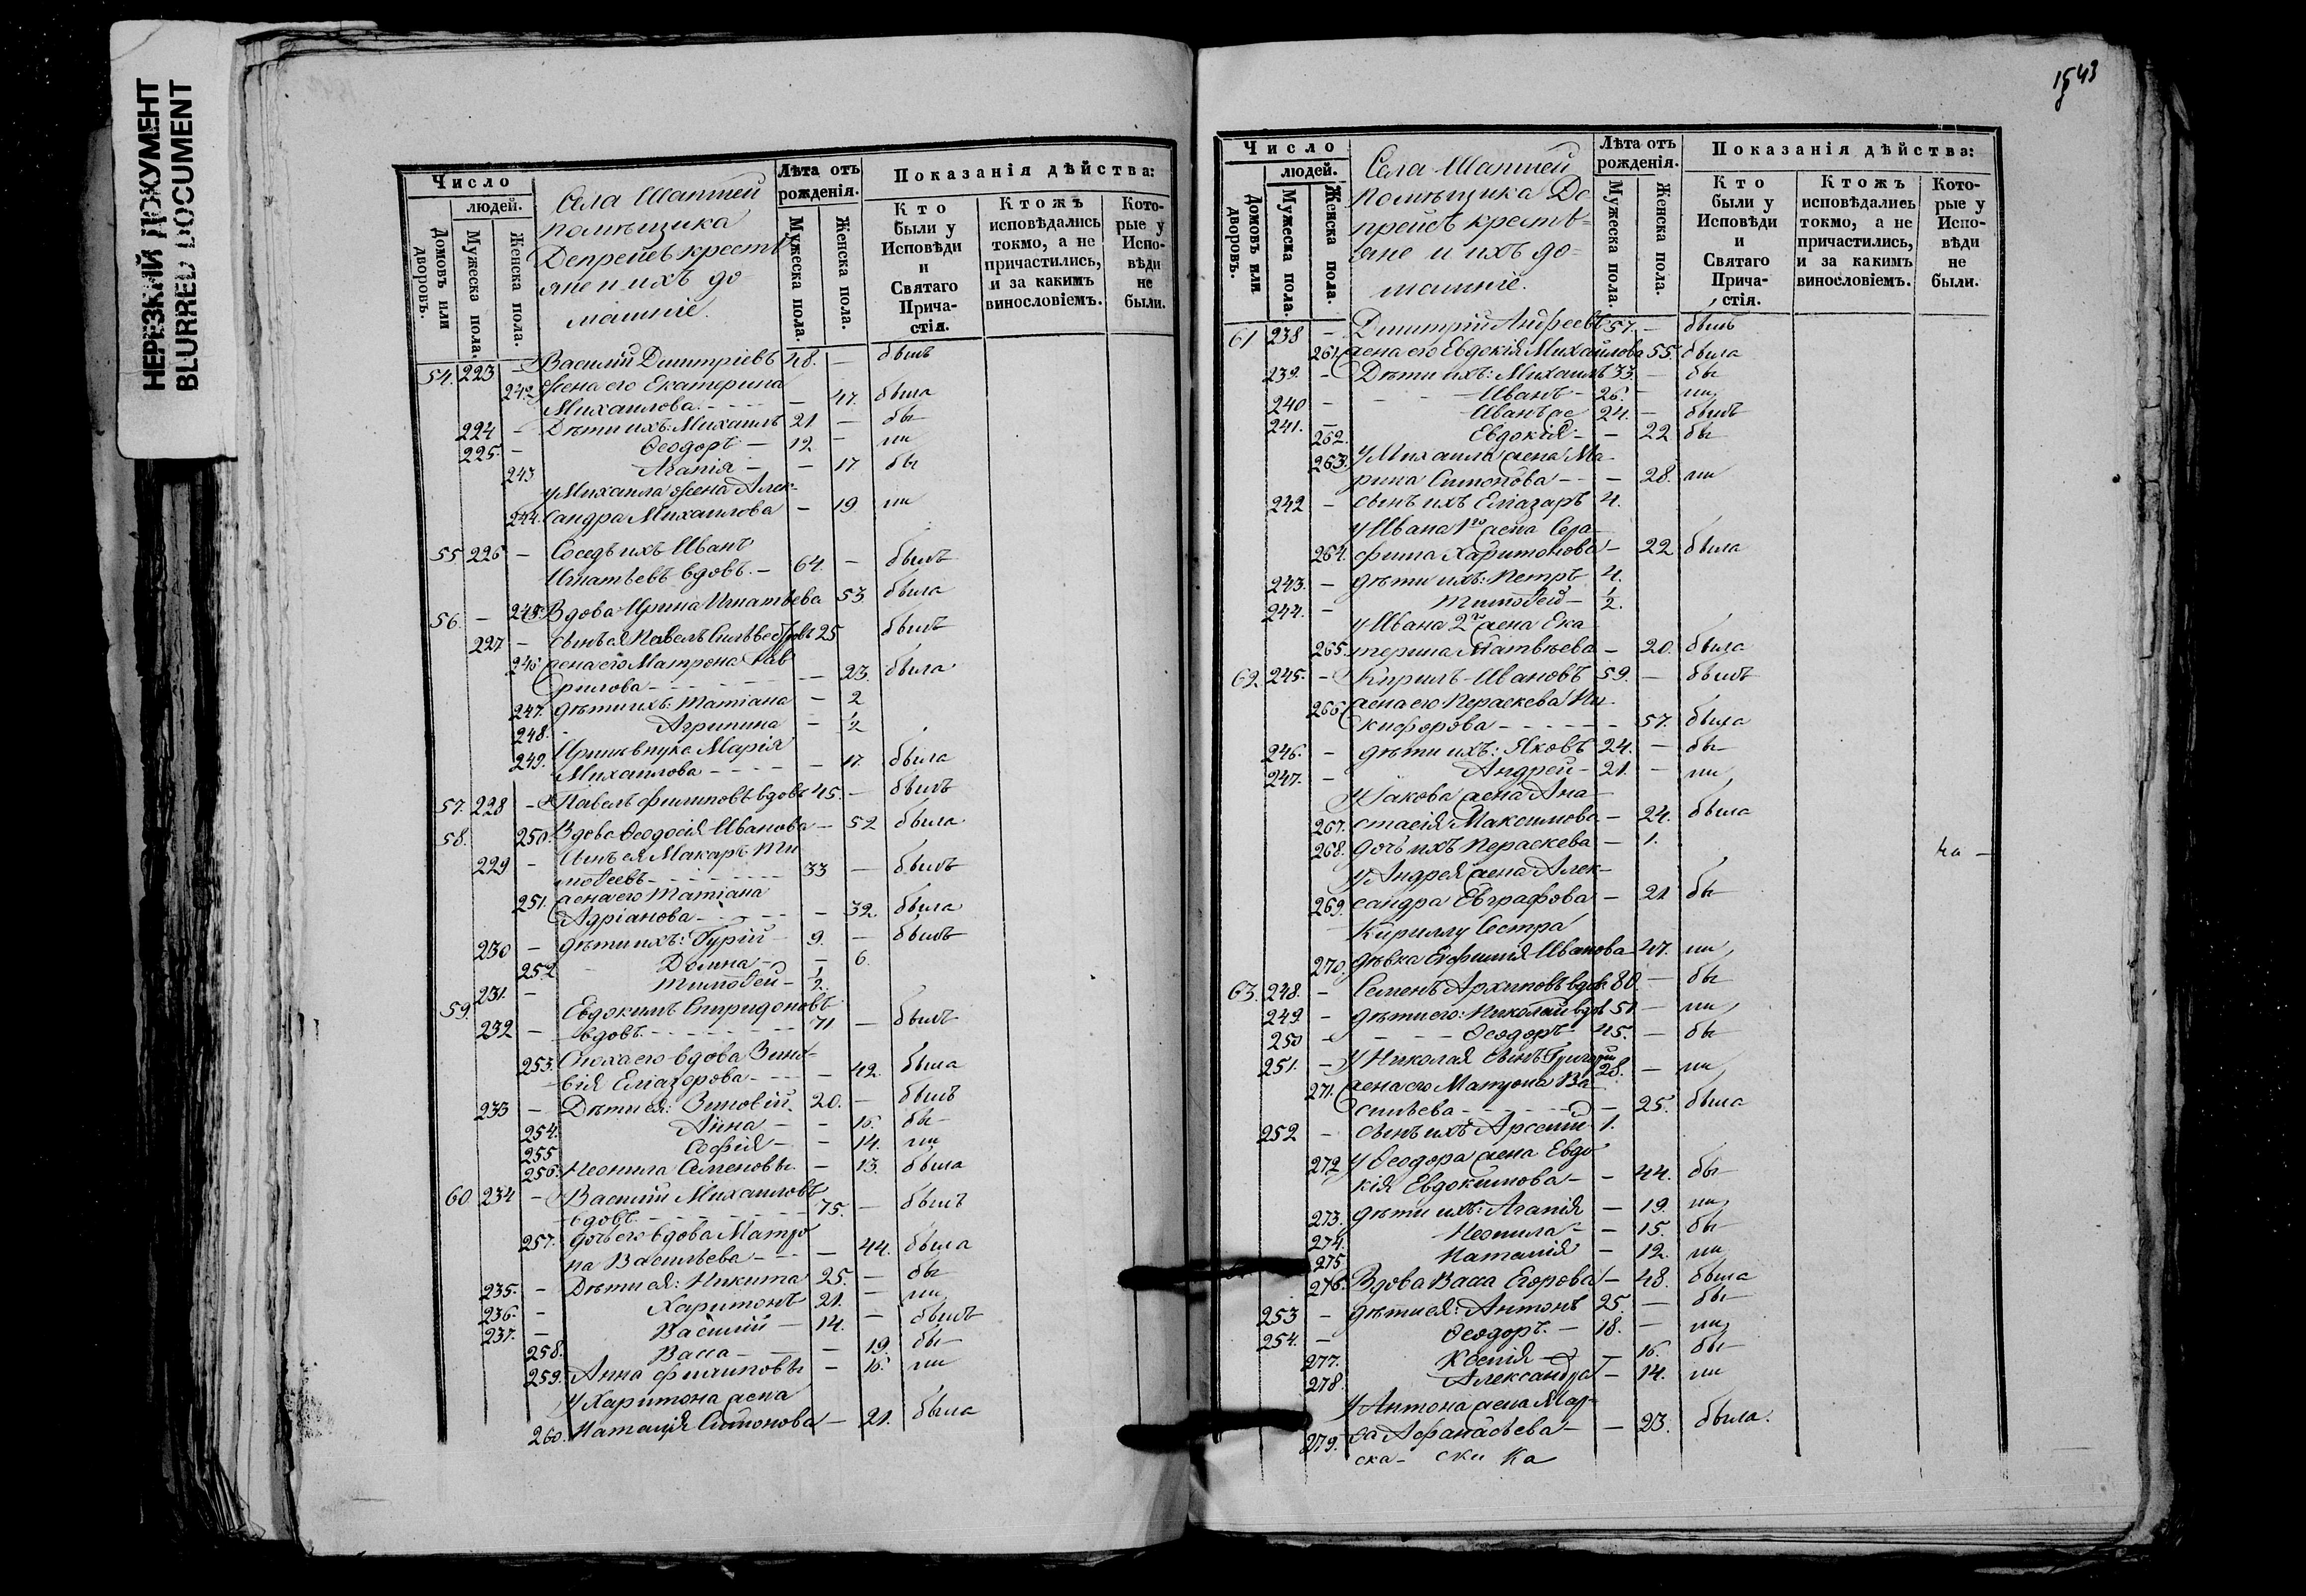 НЕРЕЗКИЙ ДОКУМЕНТ
BLURRED DOCUMENT
Число
людей.
Домовъ или дворовъ.
Мужеска пола.
Женска пола.
Села Шаптей
помѣщика
Депрейсъ крестья
яне и ихъ до-
машніе.
Лѣта отъ рожденія.
Мужеска пола.
Женска пола.
Показанія дѣйства:
Кто были у Исповѣди и Святаго Прича-стія.
Ктожъ исповѣдались токмо, а не причастились, и за какимъ винословіемъ.
Кото-рые у Испо-вѣди не были.
54. 223 - Василій Димитріевъ 48. - былъ
242 Жена его Екатерина
Михаилова - 47. была
224 - Дѣти ихъ: Михаилъ 21 - бы-
225. - Ѳеодоръ - 12. - ли
243 Агапія - - 17 бы
у Михаила жена Алек-
244. сандра Михаилова - 19 ли
55 226 - Соседъ ихъ Иванъ
Игнатьевъ вдовъ. - 64. - былъ
56. - 245 Вдова Ирина Игнатьева 53. была
227 - сынъ ея Павелъ Сильвестровъ 25 былъ
246 жена его Матрона Гав
рилова - - 23. была
247. дѣти ихъ: Татіана - 2
248. Агрипина - 1/2
249. Ирины внука Марія
Михаилова - - 17. была
57. 228 - Павелъ Филиповъ вдовъ 45. - былъ
58. 250. Вдова Ѳеодосія Иванова - 52 была
229 - Сынъ ея Макаръ Ти
моѳеевъ - 33 - былъ
251. жена его Татіана
Адріанова - - 32. была
230 - дѣти ихъ: Гурій 9. - былъ
252 Домна - - 6.
231. - Тимоѳей - 1/2.
59. Евдокимъ Спиридоновъ
232 - вдовъ. - 71 - былъ
253. Сноха его вдова Зино-
вія Еліазарова - - 42. была
233 - Дѣти ея: Зиновій. 20. - былъ
254. Анна - - 16. бы-
255 Софія - - 14. ли
256. Неонила Семеновы - 13. была
60 234 - Василій Михаиловъ
вдовъ. - 75. - былъ
257. дочь его вдова Матро
на Васильева - - 44. была
235. - Дѣти ея: Никита 25. - бы
236. - Харитонъ 21. - ли
237. - Василій - 14. - былъ
258. Васса - - 19. бы-
259. Анна Филиповы - 16. ли
У Харитона жена
260. Наталія Симонова - 21. была
1543
Число
людей.
Домовъ или дворовъ.
Мужеска пола.
Женска пола.
Села Шаптей
помѣщика Де
прейсъ крестья-
яне и ихъ до-
машніе.
Лѣта отъ рожденія.
Мужеска пола.
Женска пола.
Показанія дѣйства:
Кто были у Исповѣди и Святаго Прича-стія.
Ктожъ исповѣдались токмо, а не причастились, и за какимъ винословіемъ.
Кото-рые у Испо-вѣди не были.
61 238 - Димитрій Андреевъ 57. - былъ
261. жена его Евдокія Михайлова 55. была
239. - Дѣти ихъ: Михаилъ 33. - бы
240 - Иванъ - 26. - ли
241. - Иванъ же 24. - былъ
262. Евдокія - - 22 бы
263. У Михаила жена Ма-
рина Симонова - - 28. ли
242 - сынъ ихъ Еліазаръ 4.
У Ивана 1го жена Сера-
264. фима Харитонова - 22 была
243. - дѣти ихъ: Петръ 4.
244. - Тимоѳей - 1/2.
У Ивана 2го жена Ека
265. терина Матвѣева - 20. была
62. 245. - Кирилъ Ивановъ 59. - былъ
266. жена его Пераскева Ни
кифорова - - 57. была
246. - дѣти ихъ: Яковъ 24. - бы-
247. - Андрей - 21. - ли
У Іакова жена Ана-
267. стасія Максимова - 24. была
268. дочь ихъ Пераскева - 1.
ка -
У Андрея жена Алек-
269. сандра Евграфова - 21 бы-
Кириллу Сестра
270. дѣвка Евфимія Иванова 47. ли
63. 248. - Семенъ Архиповъ вдовъ 80. - бы
249 - дѣти его: Николай вдовъ 51 - ли
250 - Ѳеодоръ 45. - бы
251. - У Николая сынъ Григорій 28. - ли
271. жена его Матрона Ва-
сильева - - 25. была
252 - сынъ ихъ Арсеній 1.
272 У Ѳеодора жена Евдо
кія Евдокимова - - 44. бы-
273. дѣти ихъ: Агапія - 19. ли
274. Неонила - - 15. бы-
275 Наталія - 12. ли
276. Вдова Васса Егорова - 48. была
253 - дѣти ея: Антонъ 25. - бы-
254. - Ѳеодоръ. - 18. - ли
277. Ксенія - - 16. бы-
278. Александра - 14. ли
У Антона жена Мар-
279. ѳа Афанасьева - - 23. была.
ска- ски Ка